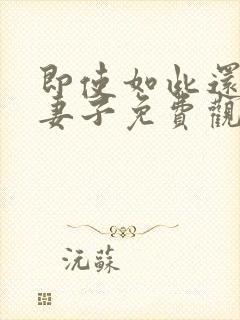 即使如此還
妻子免費觀
沅蘇